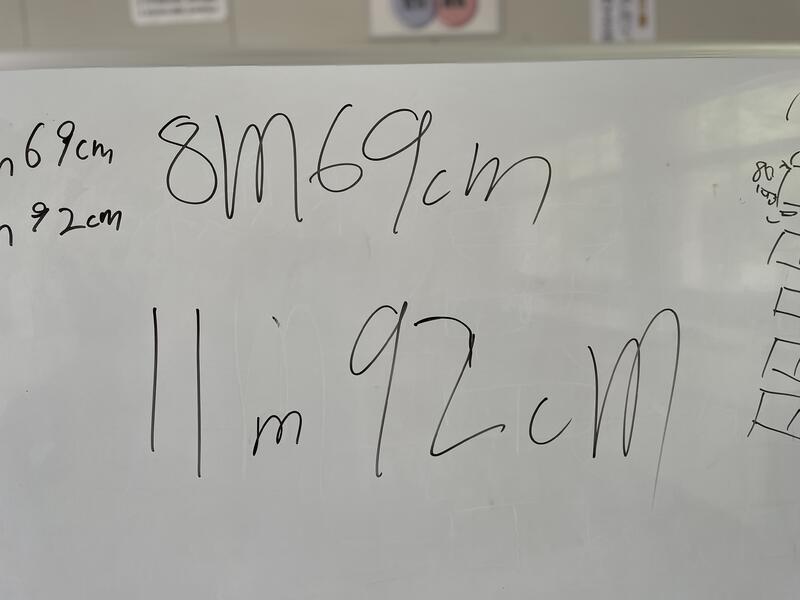 69cm
92cm
8m69cm
11m92cm
80